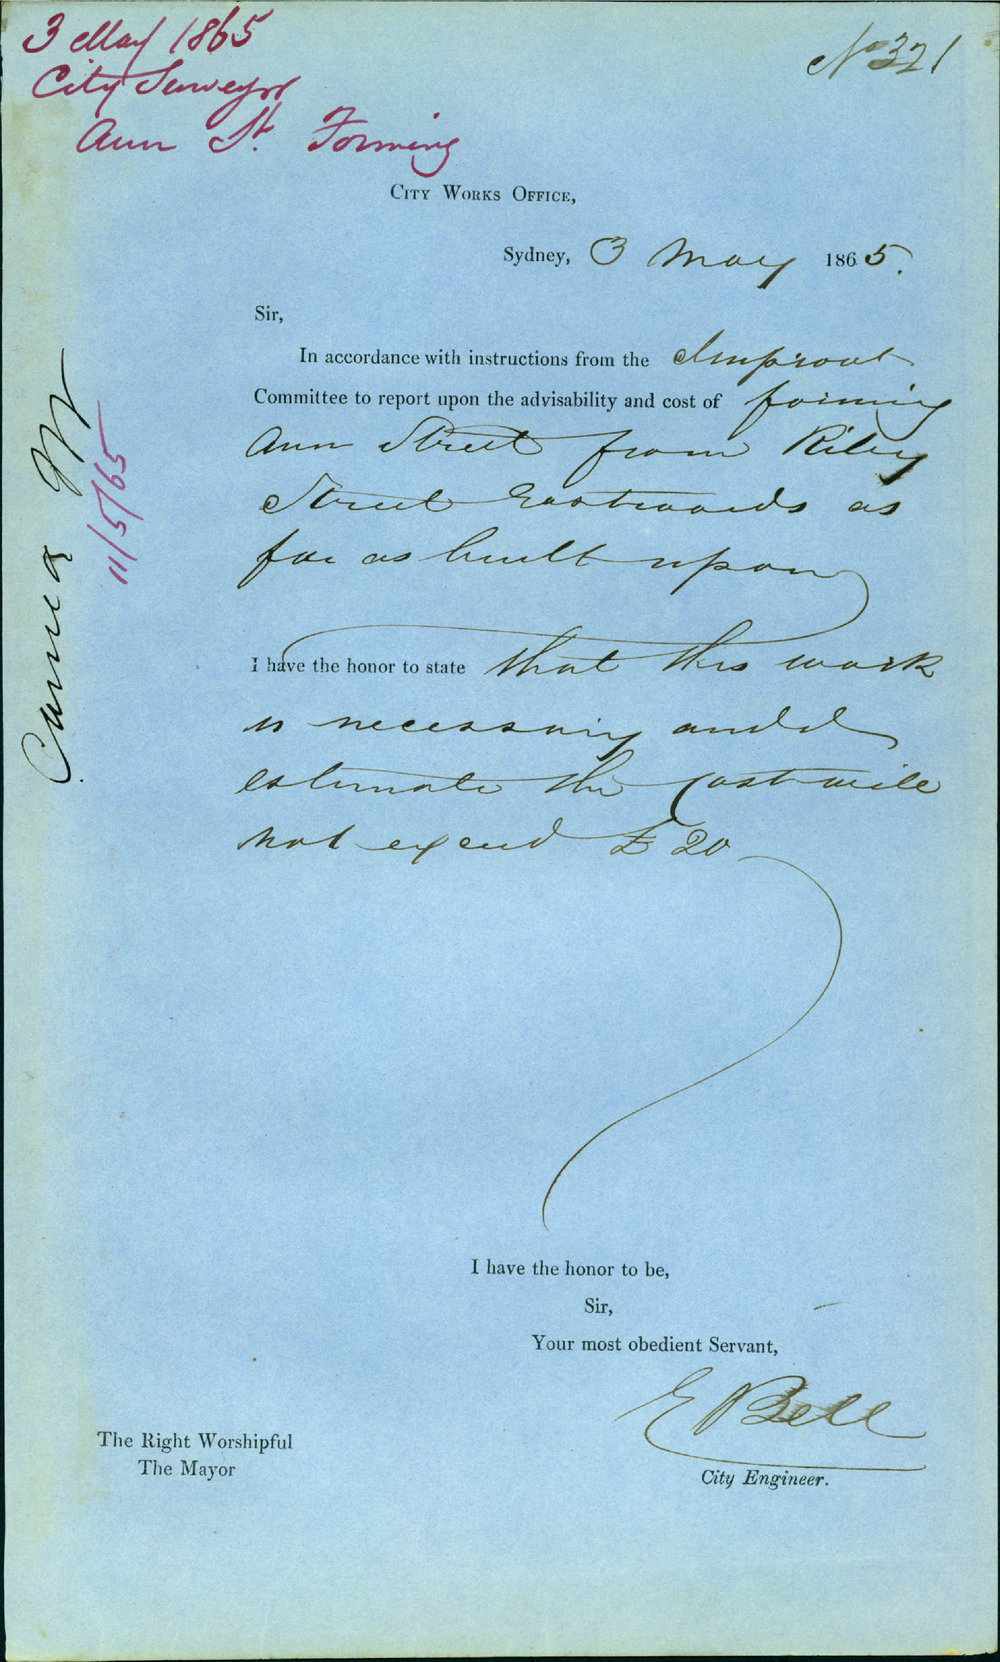 3 May 1865
City Surveyor
Ann St. Forming
No 321
City Works Office,
Sydney, 3 May 1865.
Sir,
In accordance with instructions from the Improvt
Committee to report upon the advisability and cost of forming
Ann Street from Riley
Street Eastwards as
far as built upon
I have the honor to state that this work
is necessary and I
estimate the cost will
not exceed £20
I have the honor to be,
Sir,
Your most obedient Servant,
E Bell
City Engineer.
The Right Worshipful
The Mayor
11/5/65